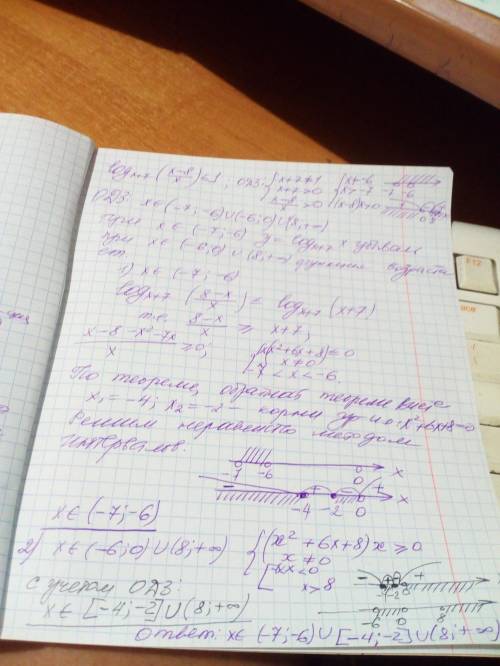 log x+7 (x-8/x) ≤ 1; ОДЗ: { x+7≠1 x+7>0 x-8/x>0 { x≠-6 x>-7 (x-8)x>0
ОДЗ: x∈(-7;-6)∪(-6;0)∪(8;+∞)
при x∈(-7;-6) y=log x+7 x убывает
при x∈(-6;0)∪(8;+∞) функция возраста
ет.
1) x∈(-7;-6)
log x+7 (8-x/x) ≤ log x+7 (x+7)
т.е. 8-x/x ≥ x+7;
x-8-x²-7x/x ≥0; { x(x²+6x+8)≤0 x≠0 -7<x<-6.
По теореме, обратной теореме Виета
x₁=-4; x₂=-2 - корни ур-я x²+6x+8=0
Решим неравенство методом
интервалов.
-7 -6 0 x
- + - 0 +
-4 -2 0 x
x∈(-7;-6)
2) x∈(-6;0)∪(8;+∞) { (x²+6x+8)x≥0 x≠0 [ -6<x<0 x>8
- + - +
-4 -2 0
С учётом ОДЗ:
x∈[-4;-2]∪(8;+∞)
-6 0 8
Ответ: x∈(-7;-6)∪[-4;-2]∪(8;+∞)